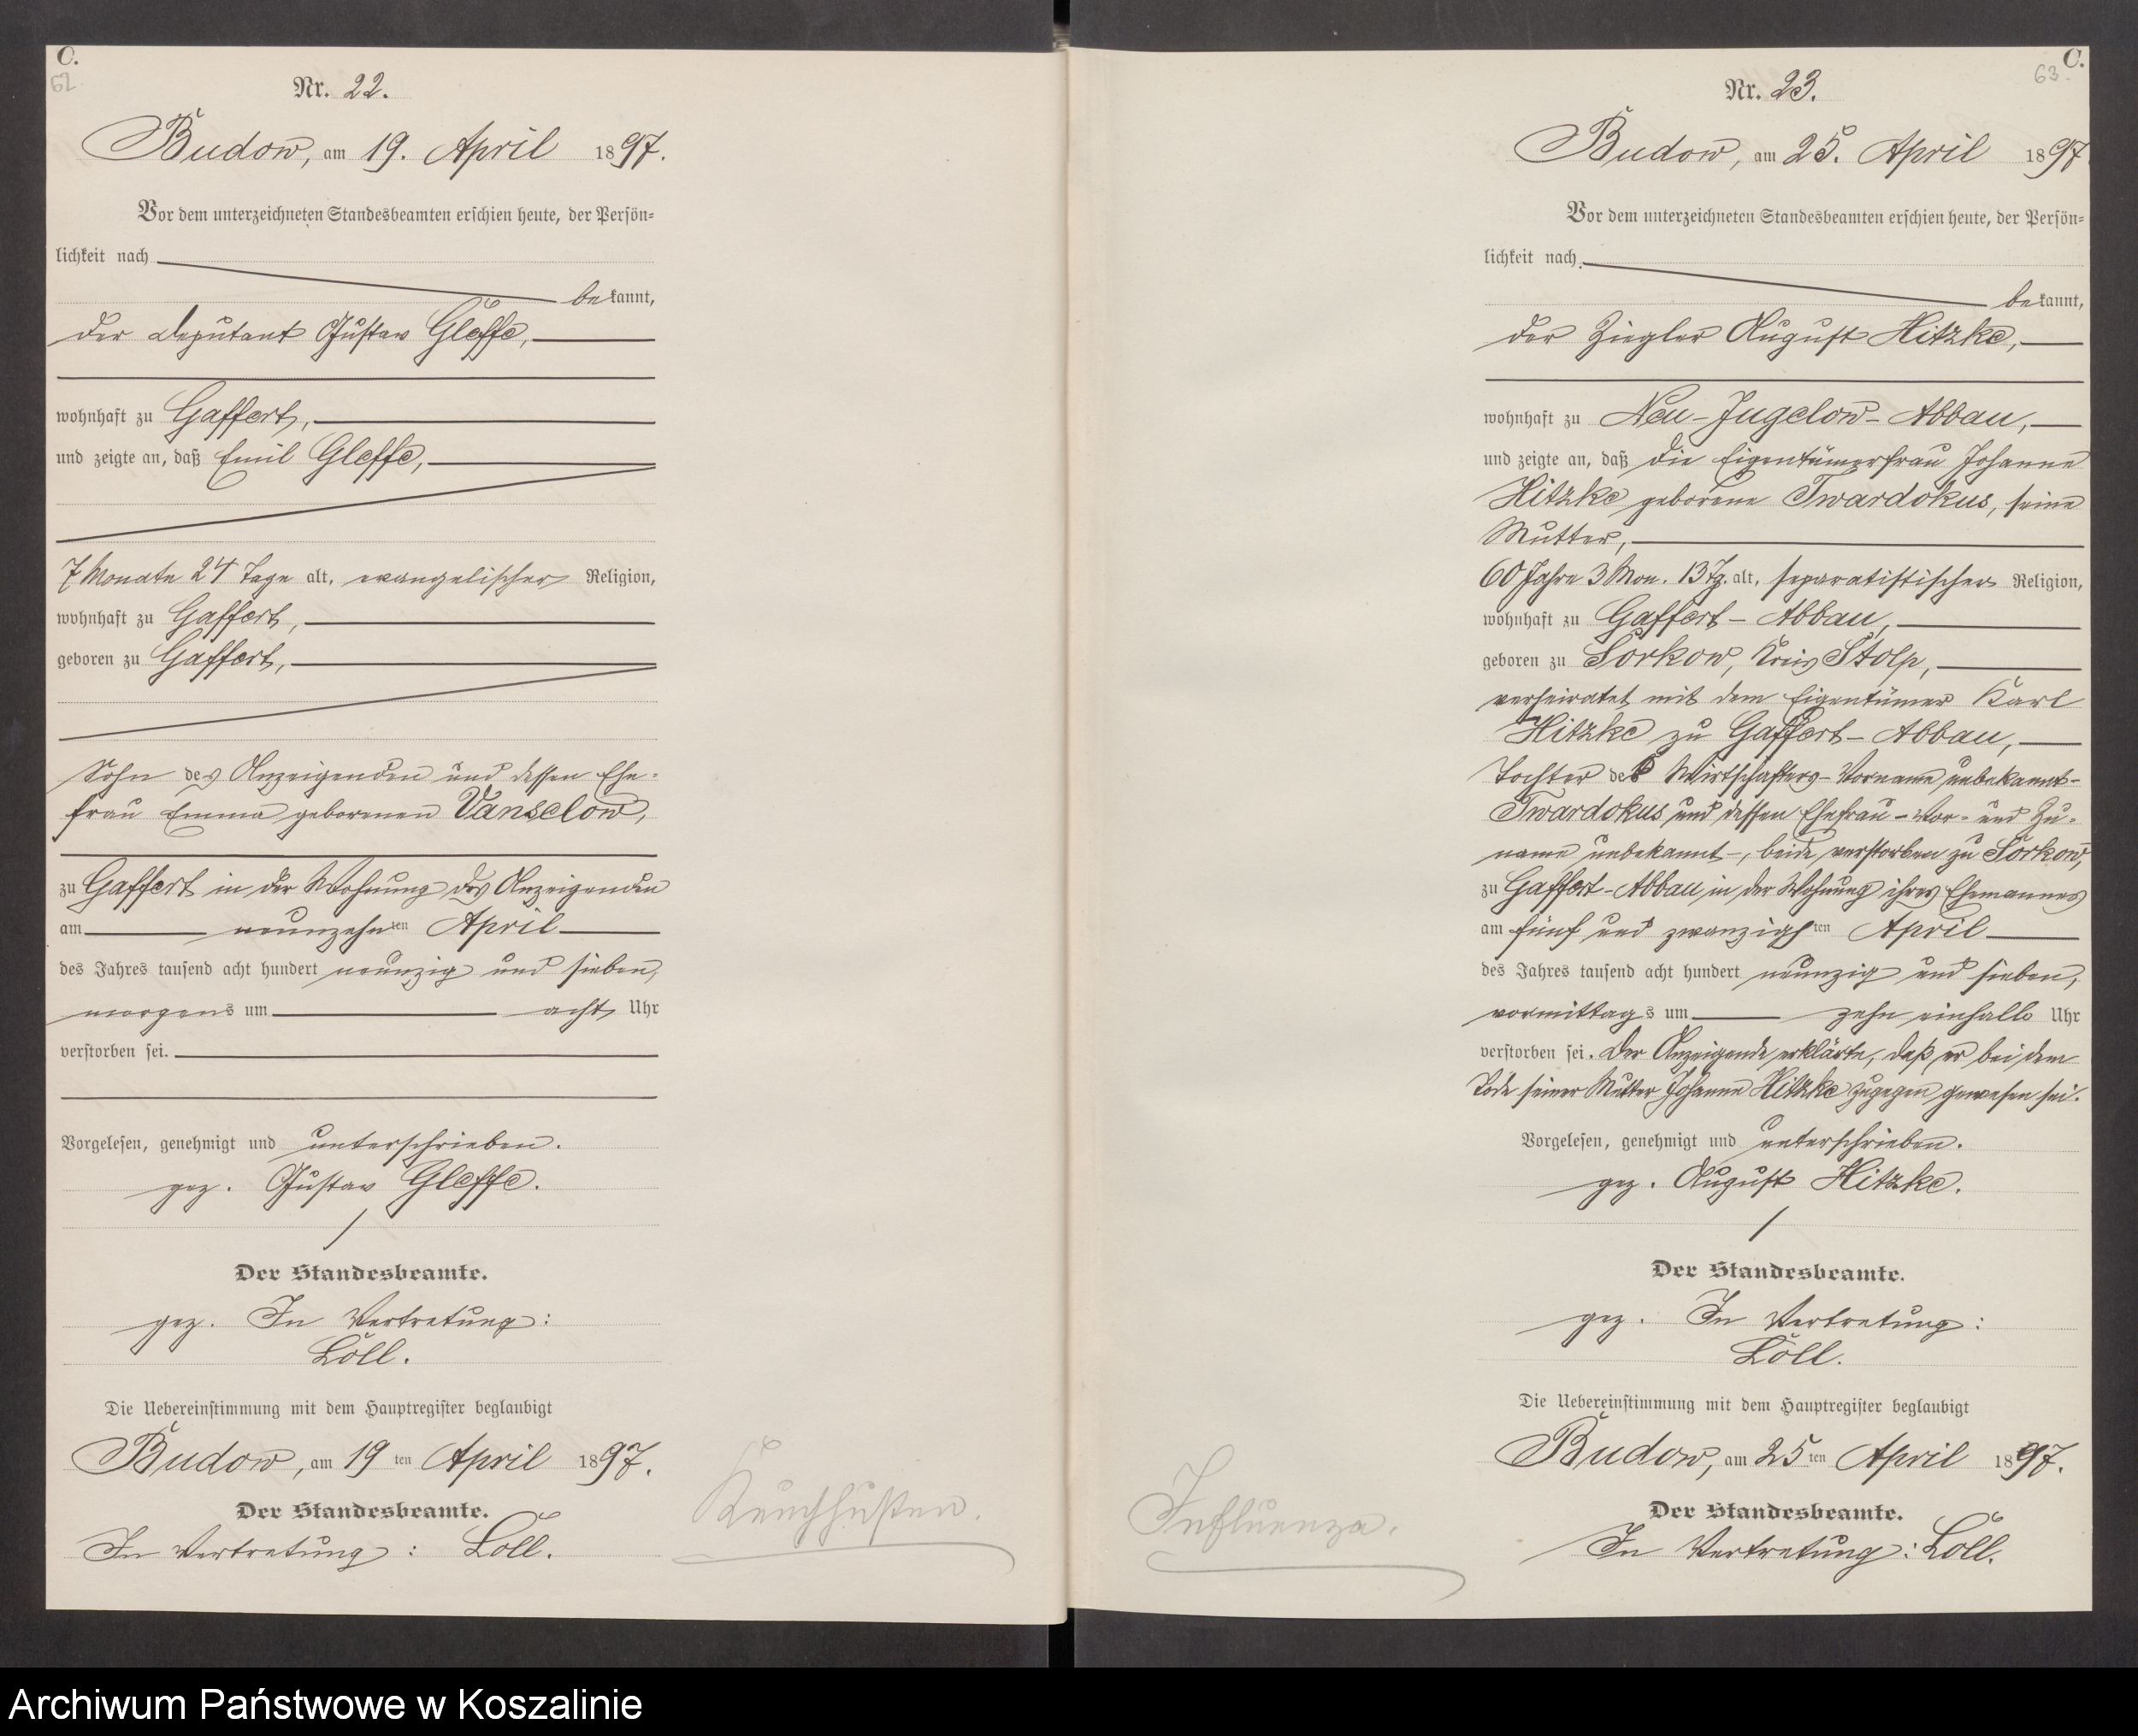 C.
62
Nr. 22.
Budow, am 19. April 1897.
Vor dem unterzeichneten Standesbeamten erschien heute, der Persön-
lichkeit nach
bekannt,
der Deputant Gustav Gleffe,
wohnhaft zu Gaffert,
und zeigte an, daß Emil Gleffe,
7 Monate 24 Tage alt, evangelischer Religion,
wohnhaft zu Gaffert,
geboren zu Gaffert,
Sohn des Anzeigenden und dessen Ehe-
frau Emma geborenen Vanselow,
zu Gaffert in der Wohnung des Anzeigenden
am neunzehnten April
des Jahres tausend acht hundert neunzig und sieben,
morgens um acht Uhr
verstorben sei.
Vorgelesen, genehmigt und unterschrieben.
gez. Gustav Gleffe.
Der Standesbeamte.
gez. In Vertretung:
Löll.
Die Uebereinstimmung mit dem Hauptregister beglaubigt
Budow, am 19ten April 1897.
Der Standesbeamte.
In Vertretung: Löll.
Keuchhusten.
C.
63.
Nr. 23.
Budow, am 25. April 1897
Vor dem unterzeichneten Standesbeamten erschien heute, der Persön-
lichkeit nach
bekannt,
der Ziegler August Hitzke,
wohnhaft zu Neu-Jugelow-Abbau,
und zeigte an, daß die Eigentümerfrau Johanne
Hitzke geborene Twardokus, seine
Mutter,
60 Jahre 3 Mon. 13 Tg. alt, separatistischer Religion,
wohnhaft zu Gaffert-Abbau,
geboren zu Sorkow, Kreis Stolp,
verheiratet mit dem Eigentümer Karl
Hitzke zu Gaffert-Abbau,
Tochter des Wirtschafters - Vorname unbekannt -
Twardokus und dessen Ehefrau - Vor- und Zu-
name unbekannt -, beide verstorben zu Sorkow,
zu Gaffert-Abbau in der Wohnung ihres Ehemannes
am fünf und zwanzigsten April
des Jahres tausend acht hundert neunzig und sieben,
vormittags um zehn einhalb Uhr
verstorben sei. Der Anzeigende erklärte, daß er bei dem
Tode seiner Mutter Johanne Hitzke zugegen gewesen sei.
Vorgelesen, genehmigt und unterschrieben.
gez. August Hitzke.
Der Standesbeamte.
gez. In Vertretung:
Löll.
Die Uebereinstimmung mit dem Hauptregister beglaubigt
Budow, am 25ten April 1897.
Der Standesbeamte.
In Vertretung: Löll.
Influenza.
Archiwum Państwowe w Koszalinie